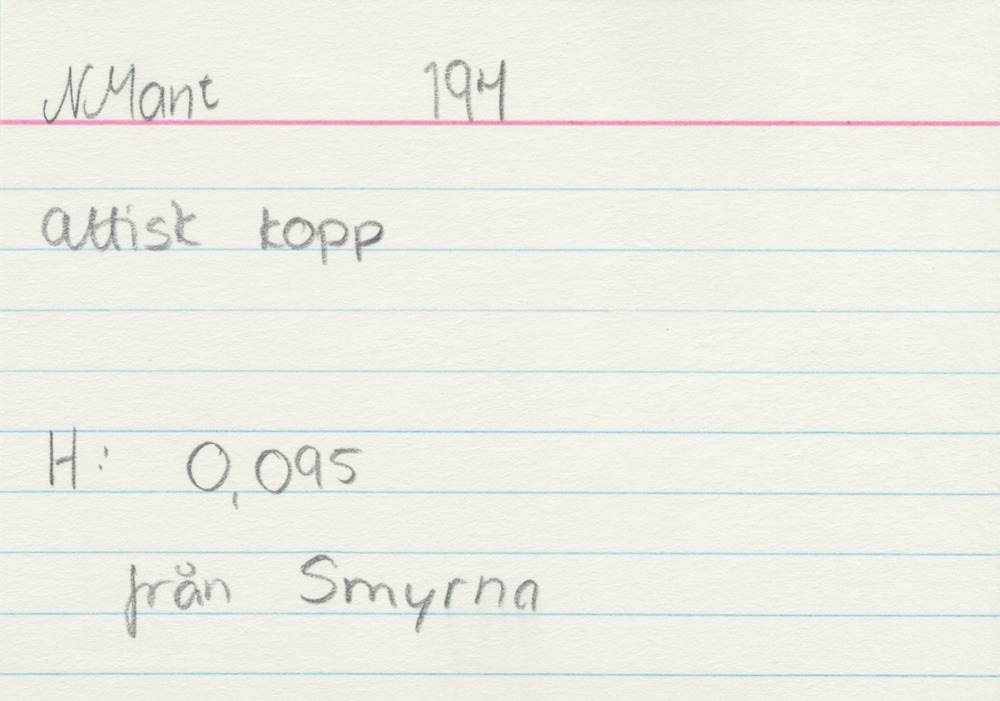 NMant 194
attisk kopp
H: 0,095
från Smyrna